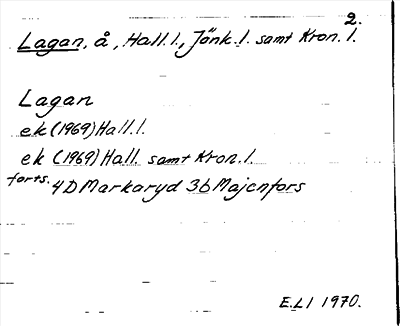 2.
Lagan, å, Hall. l., Jönk. l. samt Kron. l.
Lagan
ek (1969) Hall. l.
ek (1969) Hall. samt Kron. l.
forts. 4D Markaryd 3b Majenfors
E.L I 1970.